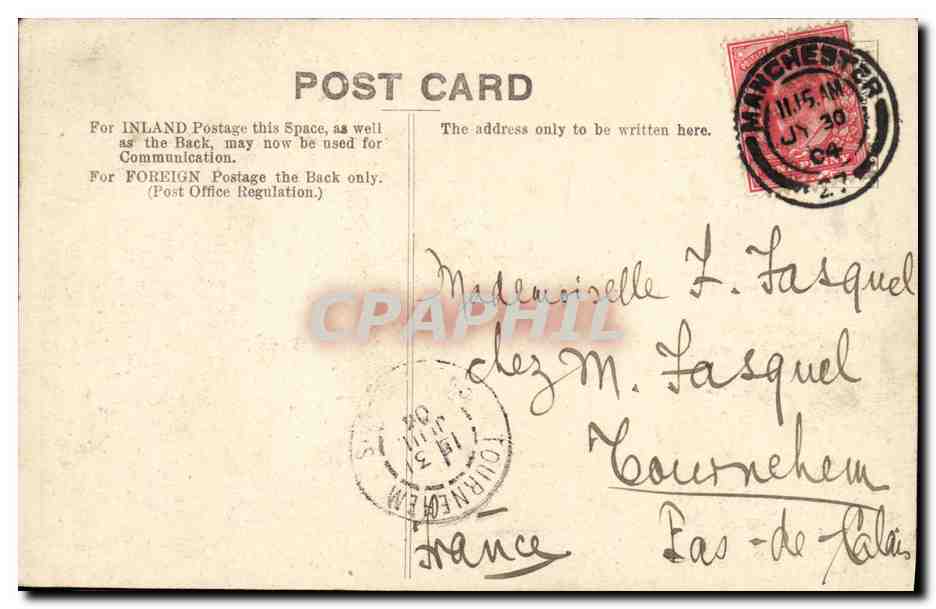 POST CARD
For INLAND Postage this Space, as well
as the Back, may now be used for
Communication.
For FOREIGN Postage the Back only.
(Post Office Regulation.)
The address only to be written here.
MANCHESTER
11.15 AM
JY 30
04
27
Mademoiselle F. Fasquel
chez M. Fasquel
Tournehem
Pas-de-Calais
France
TOURNEHEM
31
JUIL
04
CPAPHIL